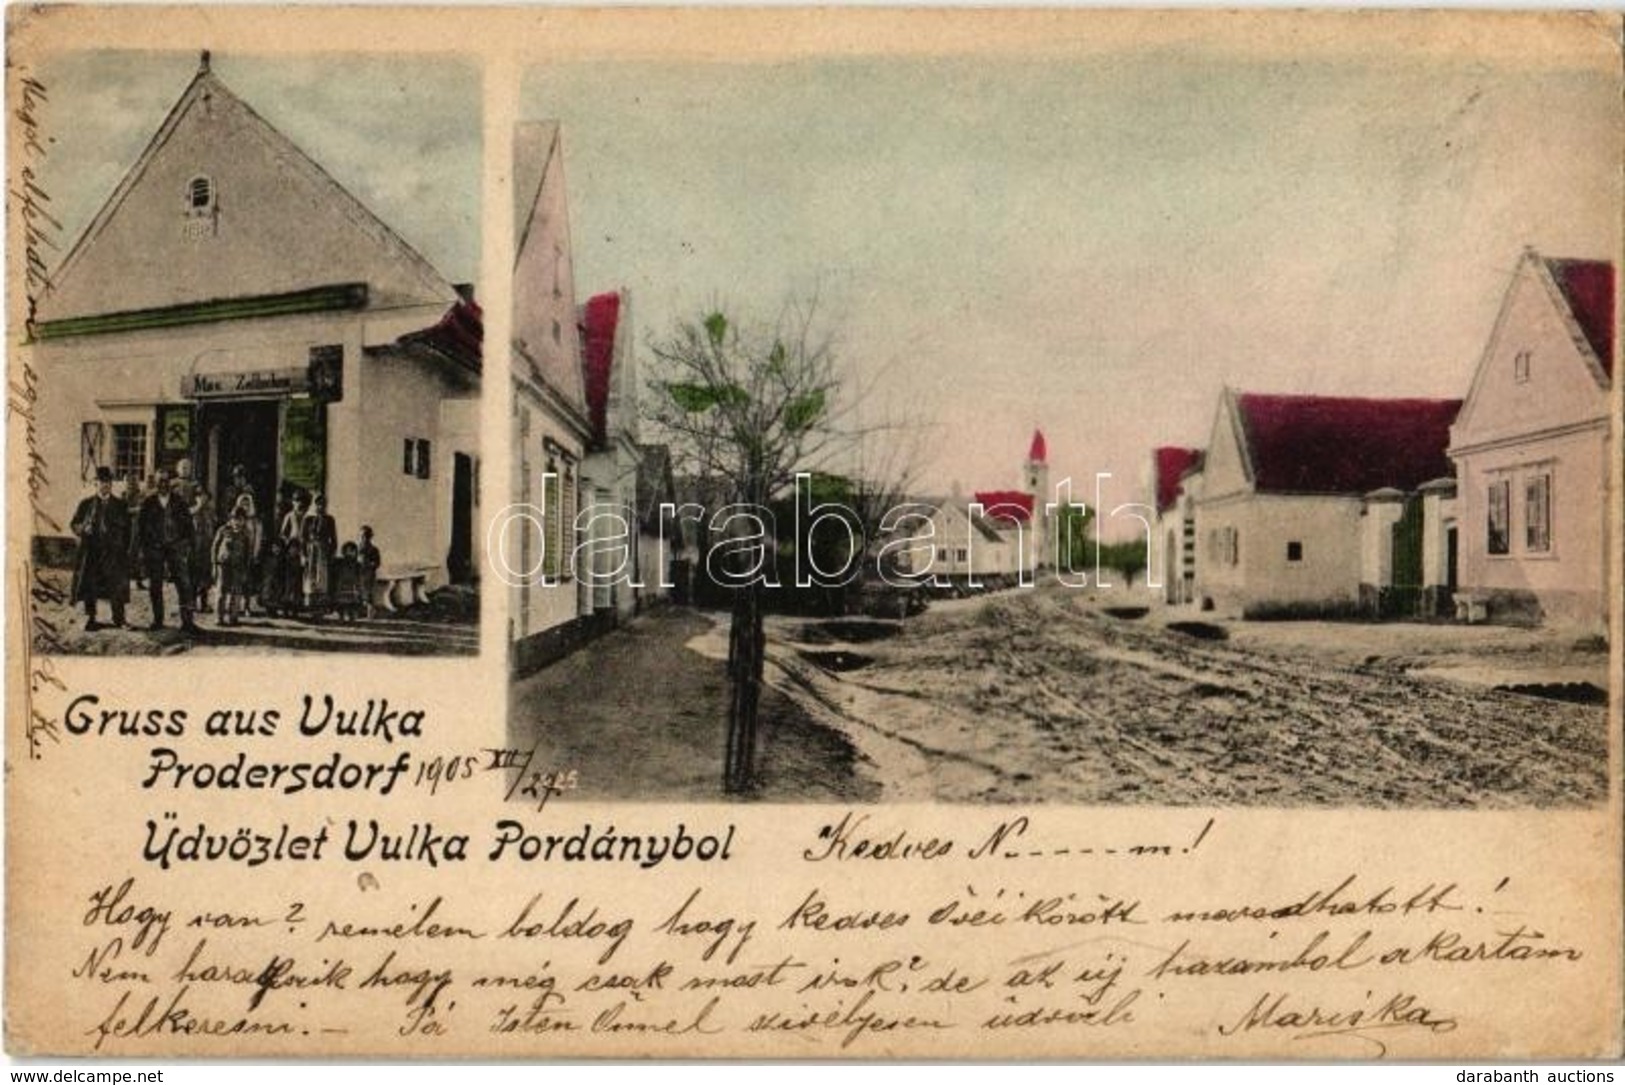 Max Zollschan
Gruss aus Vulka
Prodersdorf 1905 XII/27.
Üdvözlet Vulka Pordánybol
Kedves N.-----m!
Hogy van? remélem boldog hogy kedves Övéi között maradhatott!
Nem haragszik hogy még csak most irok? de az új hazámból akartam
felkeresni. – Pá Isten Önnel szivélyesen üdvözli Mariska
darabanth
delcampe.net
darabanth auctions